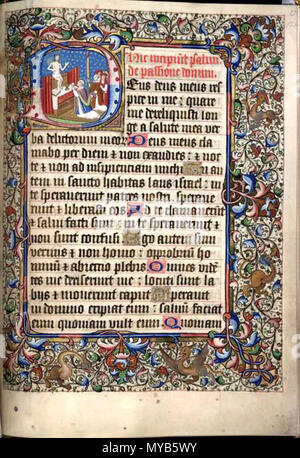 Hic incipiūt psalmi
de passione domini.
Deus deus meus res
pice in me: quare
me dereliquisti lon
ge a salute mea ver
ba delictorum meorū Deus meus cla
mabo per diem et non exaudies: et noc
te et non ad insipienciam michi
tem in sancto habitas laus israel: in
te speraverunt patres nostri spera
runt et liberasti eos. Ad te clamaverūt
et salui facti sunt: in te speraverunt et
non sunt confusi Ego autem sum
vermis et non homo: opprobriū ho
minū et abiectio plebis Omnes viden
tes me deriserunt me: locuti sunt la
bijs et moverunt caput Speravit
in domino eripiat eum: salvū faciat
eum quoniam vult eum Quoniam
alamy stock photo
Image ID: W5BYWY
www.alamy.com